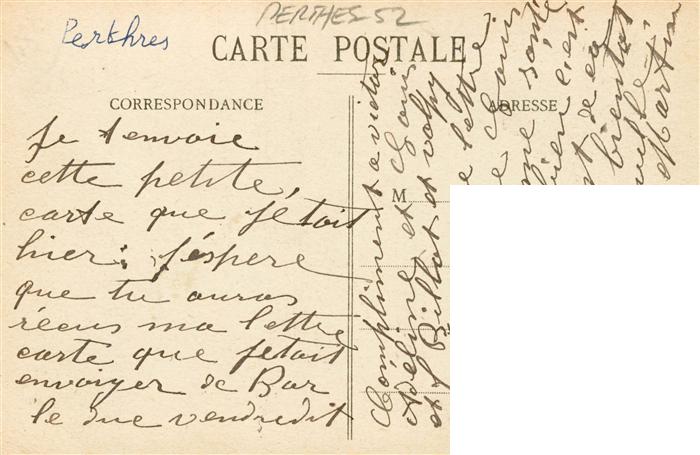 Perthres
PERTHES 52
CARTE POSTALE
CORRESPONDANCE
ADRESSE
M
Je tenvoie
cette petite,
carte que jetait
hier; j'éspere
que tu auras
récus ma lettre
carte que jetait
envoyer de Bar
le duc vendredit
Compliment a victor
Adeline et Louis
et Billot et volpy
lettre
Louis
santé
bien c'est
bientot
Martin